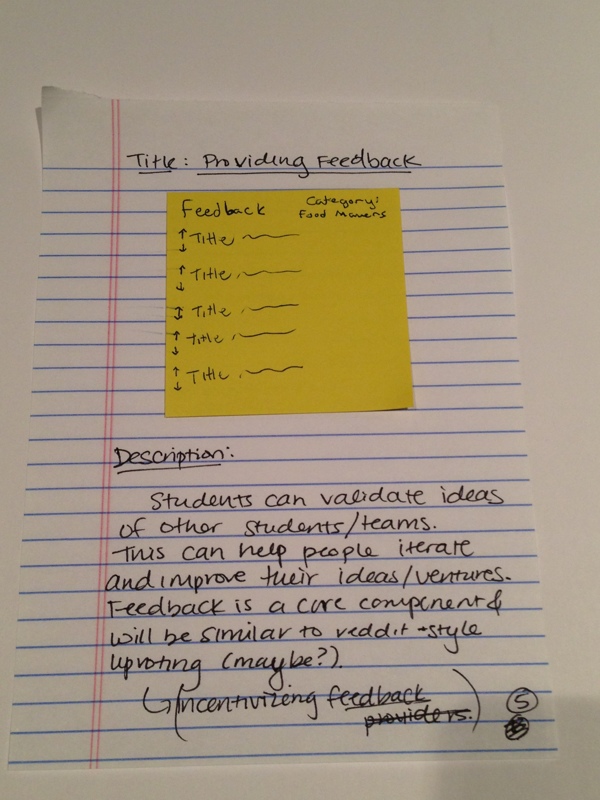 Title: Providing Feedback
Feedback
Category:
Food Makers
↑ Title
↓
↑ Title,
↓
↕ Title,
↑ Title,
↓
↑ Title,
↓
Description:
Students can validate ideas
of other students/teams.
This can help people iterate
and improve their ideas/ventures.
Feedback is a core component &
will be similar to reddit-style
upvoting (maybe?).
↳ (incentivizing feedback
providers.)
5